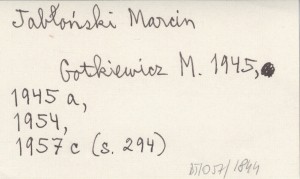 Jabłoński Marcin
Gotkiewicz M. 1945,
1945 a,
1954,
1957 c (s. 294)
1844